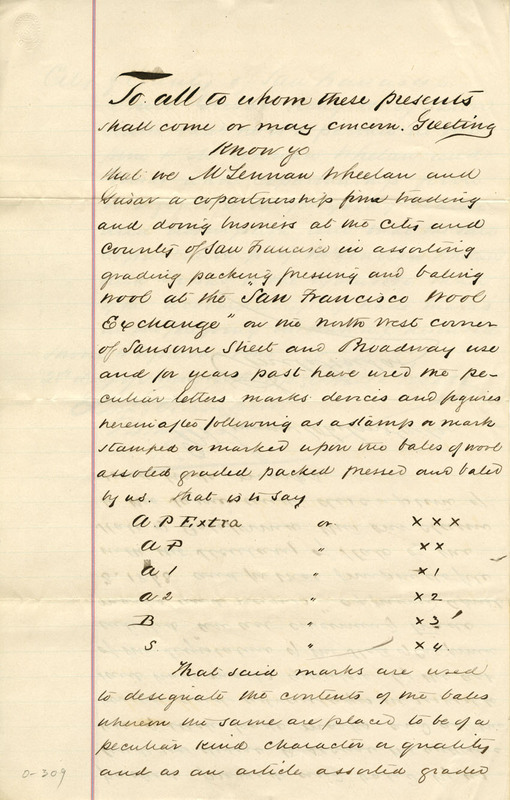 To all to whom these presents
shall come or may concern. Greeting
Know ye
that we McLennan Wheelan and
a copartnership firm trading
and doing business at the City and
County of San Francisco in assorting
grading packing pressing and baling
wool at the "San Francisco Wool
Exchange" on the North West corner
of Sansome Street and Broadway use
and for years past have used the pe-
culiar letters marks devices and figures
hereinafter following as a stamp or mark
stamped or marked upon the bales of wool
assorted graded packed pressed and baled
by us. that is to say
A.P Extra or X X X
A P " X X
A 1 " X 1
A 2 " X 2
B " X 3
S. " X 4.
That said marks are used
to designate the contents of the bales
whereon the same are placed to be of a
peculiar kind character or quality
and as an article assorted graded
0-309